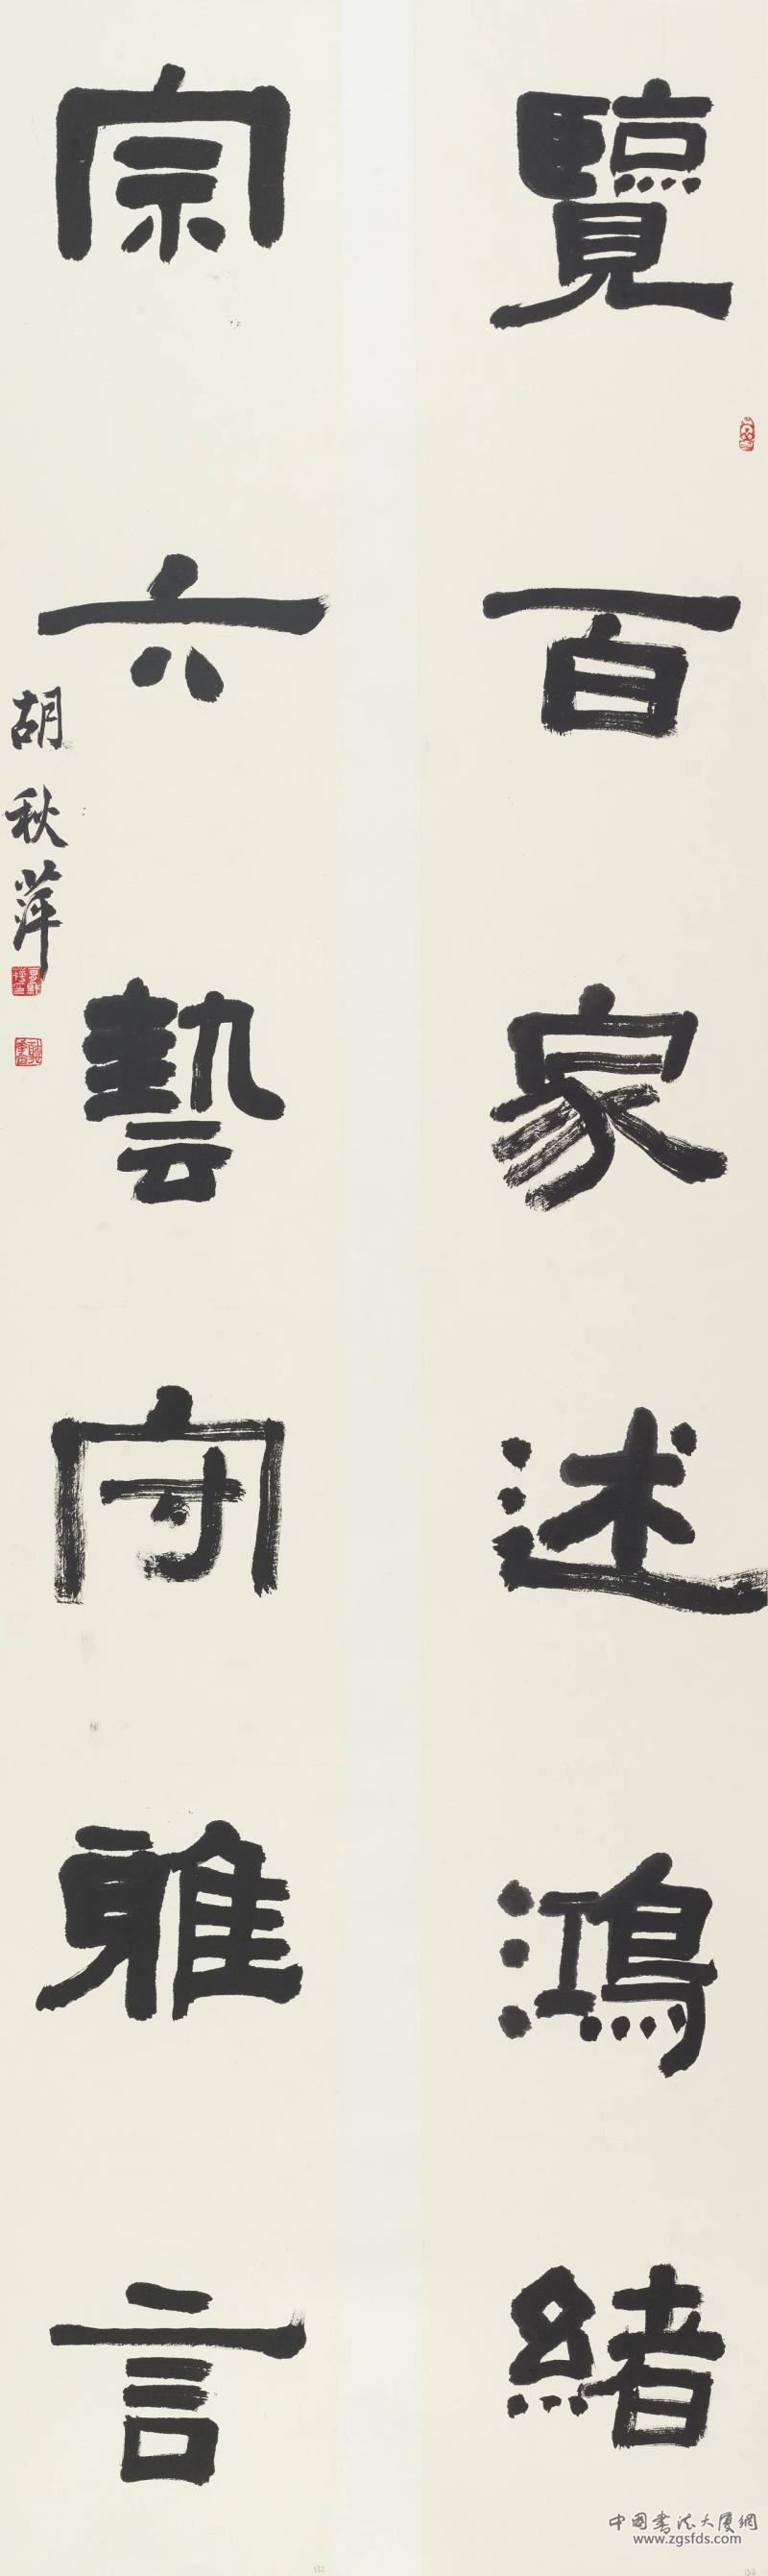 覽百家述鴻緒
宗六藝守雅言
胡秋萍
中國書法大廈網
www.zgsfds.com